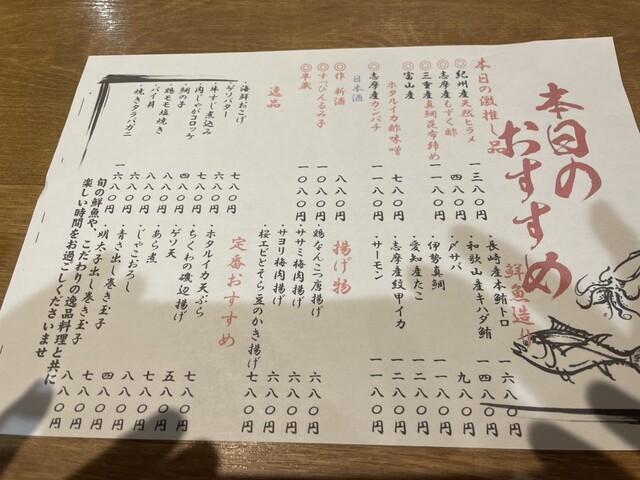 本日の
おすすめ
本日の激推し品
◎紀州産天然ヒラメ 一三八〇円
◎志摩産もずく酢 四八〇円
◎三重産真鯛昆布締め 一一八〇円
◎富山産
ホタルイカ酢味噌 七八〇円
◎志摩産カンパチ 一一八〇円
日本酒
◎作 新酒 八八〇円
◎すっぴんるみ子 一〇八〇円
◎半蔵 一〇八〇円
逸品
・海鮮おこげ 七八〇円
・ゲソバター 六八〇円
・牛すじ煮込み 六八〇円
・肉じゃがコロッケ 四八〇円
・鯛の子 八八〇円
・鶏モモ塩焼き 八八〇円
・バイ貝
・焼きタラバガニ 一六八〇円
鮮魚造り
・長崎産本鮪トロ 一六八〇円
・和歌山産キハダ鮪 一四八〇円
・〆サバ 九八〇円
・伊勢真鯛 一一八〇円
・愛知産たこ 一二八〇円
・志摩産紋甲イカ 一二八〇円
・サーモン 一一八〇円
揚げ物
・鶏なんこつ唐揚げ 六八〇円
・ササミ梅肉揚げ 六八〇円
・サヨリ梅肉揚げ 六八〇円
・桜エビとそら豆のかき揚げ 七八〇円
定番おすすめ
・ホタルイカ天ぷら 七八〇円
・ちくわの磯辺揚げ 五八〇円
・ゲソ天 七八〇円
・あら煮 八八〇円
・じゃこおろし 四八〇円
・青さ出し巻き玉子 七八〇円
・明太子出し巻き玉子 八八〇円
旬の鮮魚や、こだわりの逸品料理と共に
楽しい時間をお過ごしくださいませ